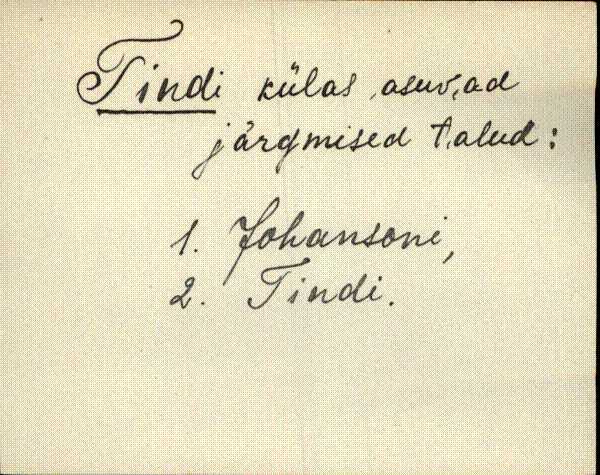 Tindi külas asuvad
järgmised talud:
1. Johansoni,
2. Tindi.